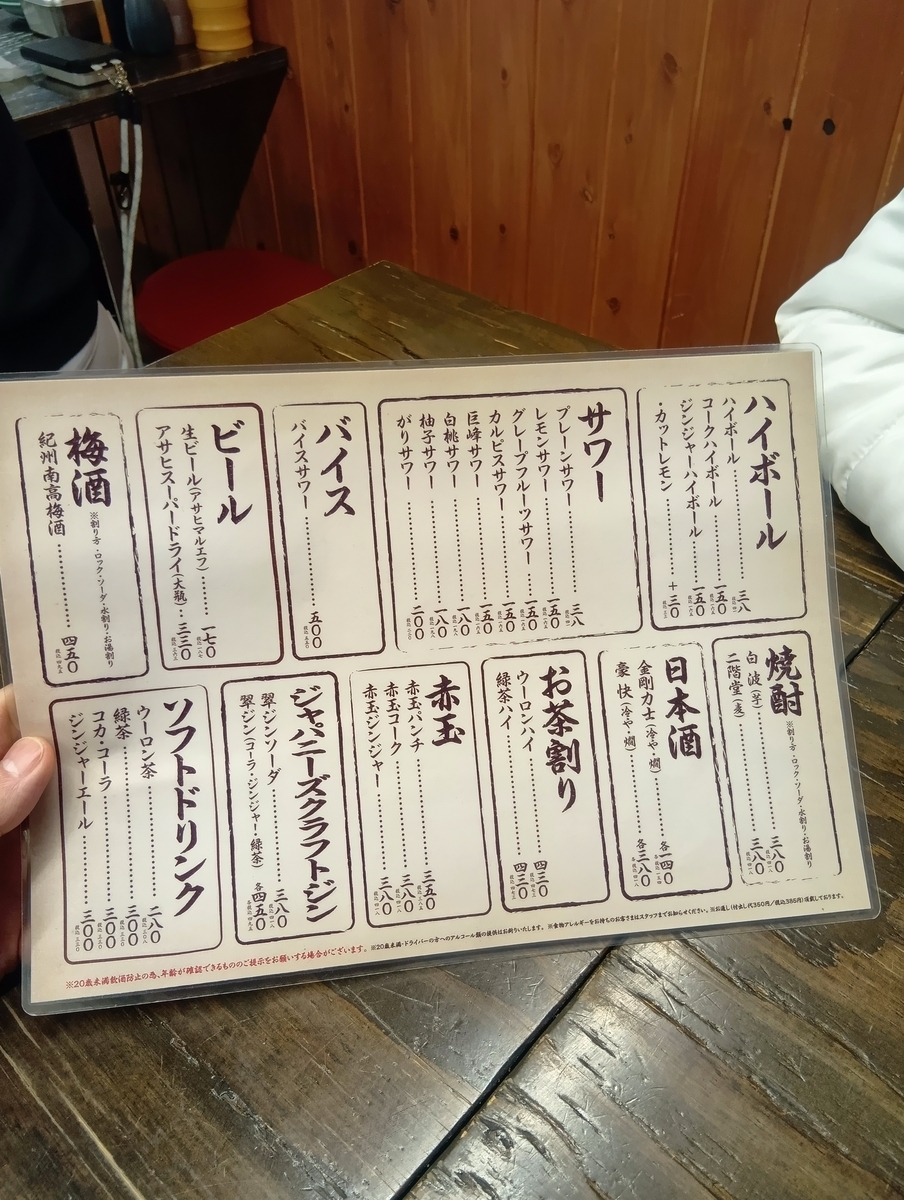 ハイボール
ハイボール 三八
コークハイボール 一五〇
ジンジャーハイボール 一五〇
・カットレモン 十三〇
サワー
プレーンサワー 三八
レモンサワー 一五〇
グレープフルーツサワー 一五〇
カルピスサワー 一五〇
巨峰サワー 一五〇
白桃サワー 一八〇
柚子サワー 一八〇
がりサワー 二〇〇
バイス
バイスサワー 五〇〇
ビール
生ビール(アサヒマルエフ) 一七〇
アサヒスーパードライ(大瓶) 三三〇
梅酒
※割り方・ロック・ソーダ・水割り・お湯割り
紀州南高梅酒 四五〇
焼酎
※割り方・ロック・ソーダ・水割り・お湯割り
白波(芋) 三八〇
二階堂(麦) 三八〇
日本酒
金剛力士(冷や・燗) 各一四〇
豪快(冷や・燗) 各三八〇
お茶割り
ウーロンハイ 四三〇
緑茶ハイ 四三〇
赤玉
赤玉パンチ 三五〇
赤玉コーク 三八〇
赤玉ジンジャー 三八〇
ジャパニーズクラフトジン
翠・ジンソーダ 三八〇
翠・ジン(コーラ・ジンジャー・緑茶) 各四五〇
ソフトドリンク
ウーロン茶 二八〇
緑茶 三〇〇
コカ・コーラ 三〇〇
ジンジャーエール 三〇〇
※20歳未満飲酒防止の為、年齢が確認できるもののご提示をお願いする場合がございます。※20歳未満・ドライバーの方へのアルコール類の提供はお断りいたします。※食物アレルギーをお持ちのお客さまはスタッフまでお知らせください。※お通し(付出し代350円/税込385円)頂戴しております。